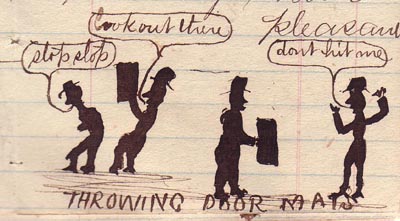 look out there
pleasant
stop stop
dont hit me
THROWING DOOR MATS